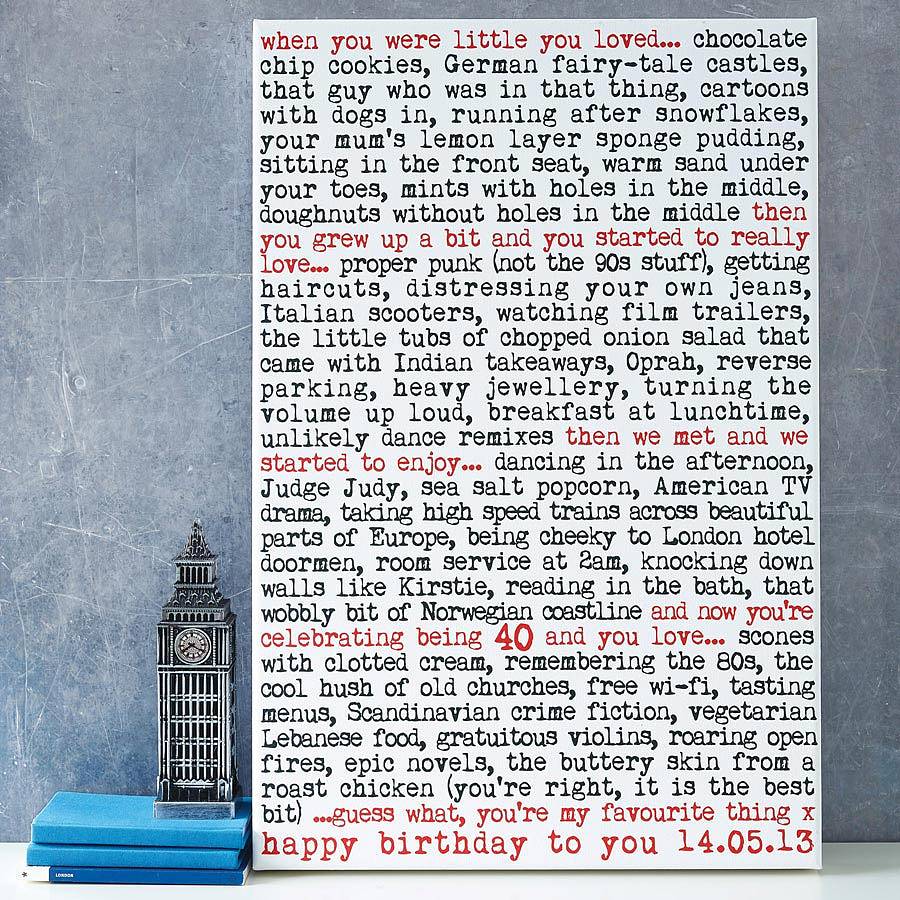 when you were little you loved... chocolate
chip cookies, German fairy-tale castles,
that guy who was in that thing, cartoons
with dogs in, running after snowflakes,
your mum's lemon layer sponge pudding,
sitting in the front seat, warm sand under
your toes, mints with holes in the middle,
doughnuts without holes in the middle then
you grew up a bit and you started to really
love... proper punk (not the 90s stuff), getting
haircuts, distressing your own jeans,
Italian scooters, watching film trailers,
the little tubs of chopped onion salad that
came with Indian takeaways, Oprah, reverse
parking, heavy jewellery, turning the
volume up loud, breakfast at lunchtime,
unlikely dance remixes then we met and we
started to enjoy... dancing in the afternoon,
Judge Judy, sea salt popcorn, American TV
drama, taking high speed trains across beautiful
parts of Europe, being cheeky to London hotel
doormen, room service at 2am, knocking down
walls like Kirstie, reading in the bath, that
wobbly bit of Norwegian coastline and now you're
celebrating being 40 and you love... scones
with clotted cream, remembering the 80s, the
cool hush of old churches, free wi-fi, tasting
menus, Scandinavian crime fiction, vegetarian
Lebanese food, gratuitous violins, roaring open
fires, epic novels, the buttery skin from a
roast chicken (you're right, it is the best
bit) ...guess what, you're my favourite thing x
happy birthday to you 14.05.13
LONDON